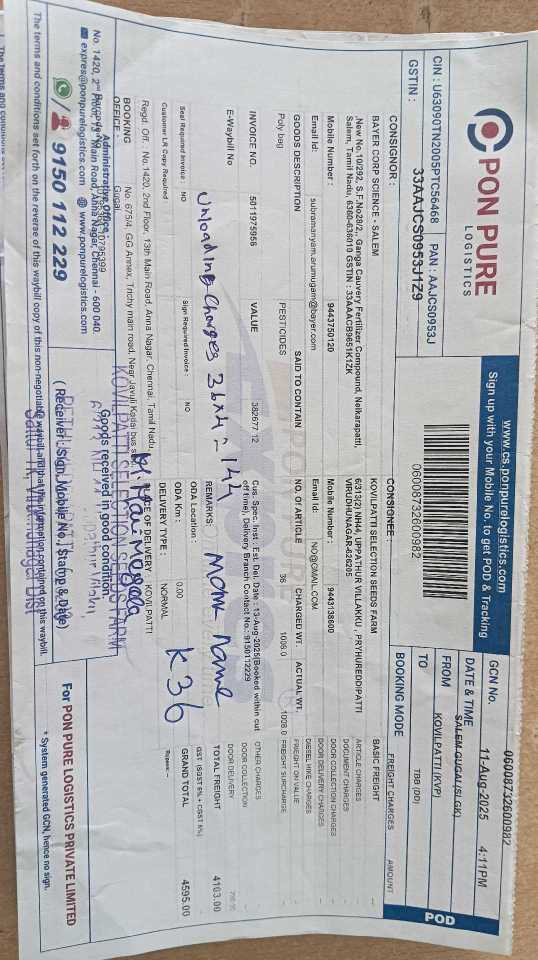 PON PURE
LOGISTICS
www.cs.ponpurelogistics.com
Sign up with your Mobile No. to get POD & Tracking
CIN : U63090TN2005PTC56468 PAN : AAJCS0953J
GSTIN : 33AAJCS0953J1Z9
06008732600982
GCN No. 06008732600982
DATE & TIME 11-Aug-2025 4:11PM
FROM SALEM-GUGAI(SLGK)
TO KOVILPATTI (KVP)
BOOKING MODE TBB (DD)
POD
CONSIGNOR :
BAYER CORP SCIENCE - SALEM
,New No.10/292, S.F.No28/2., Ganga Cauvery Fertilizer Compound, Neikarapatti,
Salem, Tamil Nadu, 6360-636010 GSTIN : 33AAACB9651K1ZK
Mobile Number : 9443750120
Email Id: subramanyam.arumugam@bayer.com
CONSIGNEE :
KOVILPATTI SELECTION SEEDS FARM
6/313(2) NH44, UPPATHUR VILLAKKU, PRYHUREDDIPATTI
VIRUDHUNAGAR-626205
Mobile Number : 9443138600
Email Id: NO@GMAIL.COM
FREIGHT CHARGES AMOUNT
BASIC FREIGHT
ARTICLE CHARGES
DOCUMENT CHARGES
DOOR COLLECTION CHARGES
DOOR DELIVERY CHARGES
DIESEL HIKE CHARGES
FREIGHT ON VALUE
FREIGHT SURCHARGE
OTHER CHARGES
DOOR COLLECTION
DOOR DELIVERY
TOTAL FREIGHT 4103.00
GST (SGST 6% + CGST 6%)
GRAND TOTAL 4595.00
Rupees --
GOODS DESCRIPTION SAID TO CONTAIN NO. OF ARTICLE CHARGED WT. ACTUAL WT.
Poly bag PESTICIDES 36 1008.0 1008.0
INVOICE NO. 5011975958 VALUE 382677.12
Cus. Spec. Inst : Est. Del. Date : 13-Aug-2025(Booked within cut off time), Delivery Branch Contact No.: 9150112229
E-Waybill No
REMARKS:
unloading charges 36x4 = 144
K36
Seal Required Invoice : NO Sign Required Invoice : NO
Customer LR Copy Required
ODA Location :
ODA Km : 0.00
DELIVERY TYPE : NORMAL
Regd. Off. : No.1420, 2nd Floor, 13th Main Road, Anna Nagar, Chennai, Tamil Nadu
BOOKING OFFICE : No. 675/4, GG Annex, Trichy main road, Near Javuli Kadai bus
Gugai,
OF DELIVERY : KOVILPATTI
Administrative Office
No. 1420, 2nd Floor, 13th Main Road, Anna Nagar, Chennai - 600 040.
expres@ponpurelogistics.com www.ponpurelogistics.com
9150 112 229
Goods received in good condition.
KOVILPATTI SELECTION SEEDS FARM
( Receiver Sign, Mobile No., Stamp & Date)
For PON PURE LOGISTICS PRIVATE LIMITED
* System generated GCN, hence no sign.
The terms and conditions set forth on the reverse of this waybill copy of this non-negotiable waybill and that the information contained on this waybill.